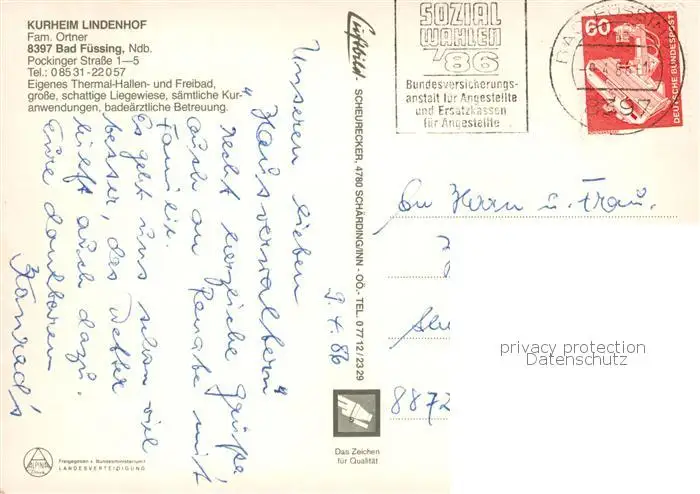 KURHEIM LINDENHOF
Fam. Ortner
8397 Bad Füssing, Ndb.
Pockinger Straße 1—5
Tel.: 08531-22057
Eigenes Thermal-Hallen- und Freibad,
große, schattige Liegewiese, sämtliche Kur-
anwendungen, badeärztliche Betreuung.
Unseren lieben
"Hausverwaltern"
recht herzliche Grüße
auch an Renate mit
Familie.
Es geht uns schon viel
besser, das Wetter
hilft auch dazu.
Eure dankbaren
Konrad's
9.4.86
Luftbild
SCHEURECKER, 4780 SCHÄRDING/INN - OÖ. - TEL. 0 77 12 / 23 29
Das Zeichen
für Qualität
ALPINA
Freigegeben v. Bundesministerium f.
LANDESVERTEIDIGUNG
SOZIAL
WAHLEN
'86
Bundesversicherungs-
anstalt für Angestellte
und Ersatzkassen
für Angestellte
BAD FÜSSING
8397
60
DEUTSCHE BUNDESPOST
An Herrn u. Frau
8872
privacy protection
AnsichtskartenVersand.com